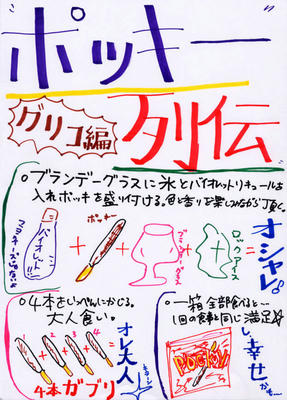 ポッキー
列伝
グリコ編
○ブランデーグラスに氷とバイオレットリキュールを
入れポッキーを盛り付ける。色と香りを楽しみながら頂く。
バイオレット!!
マヨネーズじゃないよ
+
ポッキー
+
ブランデーグラス
+
ロックアイス
=
オシャレ。
○4本をいっぺんにかじる。
大人食い。
1
2
3
4
4本ガブリ
=
オレ大人
キラーン
○一箱全部食べると…
1回の食事と同じ満足感
POCKY
=
し、幸せかも…